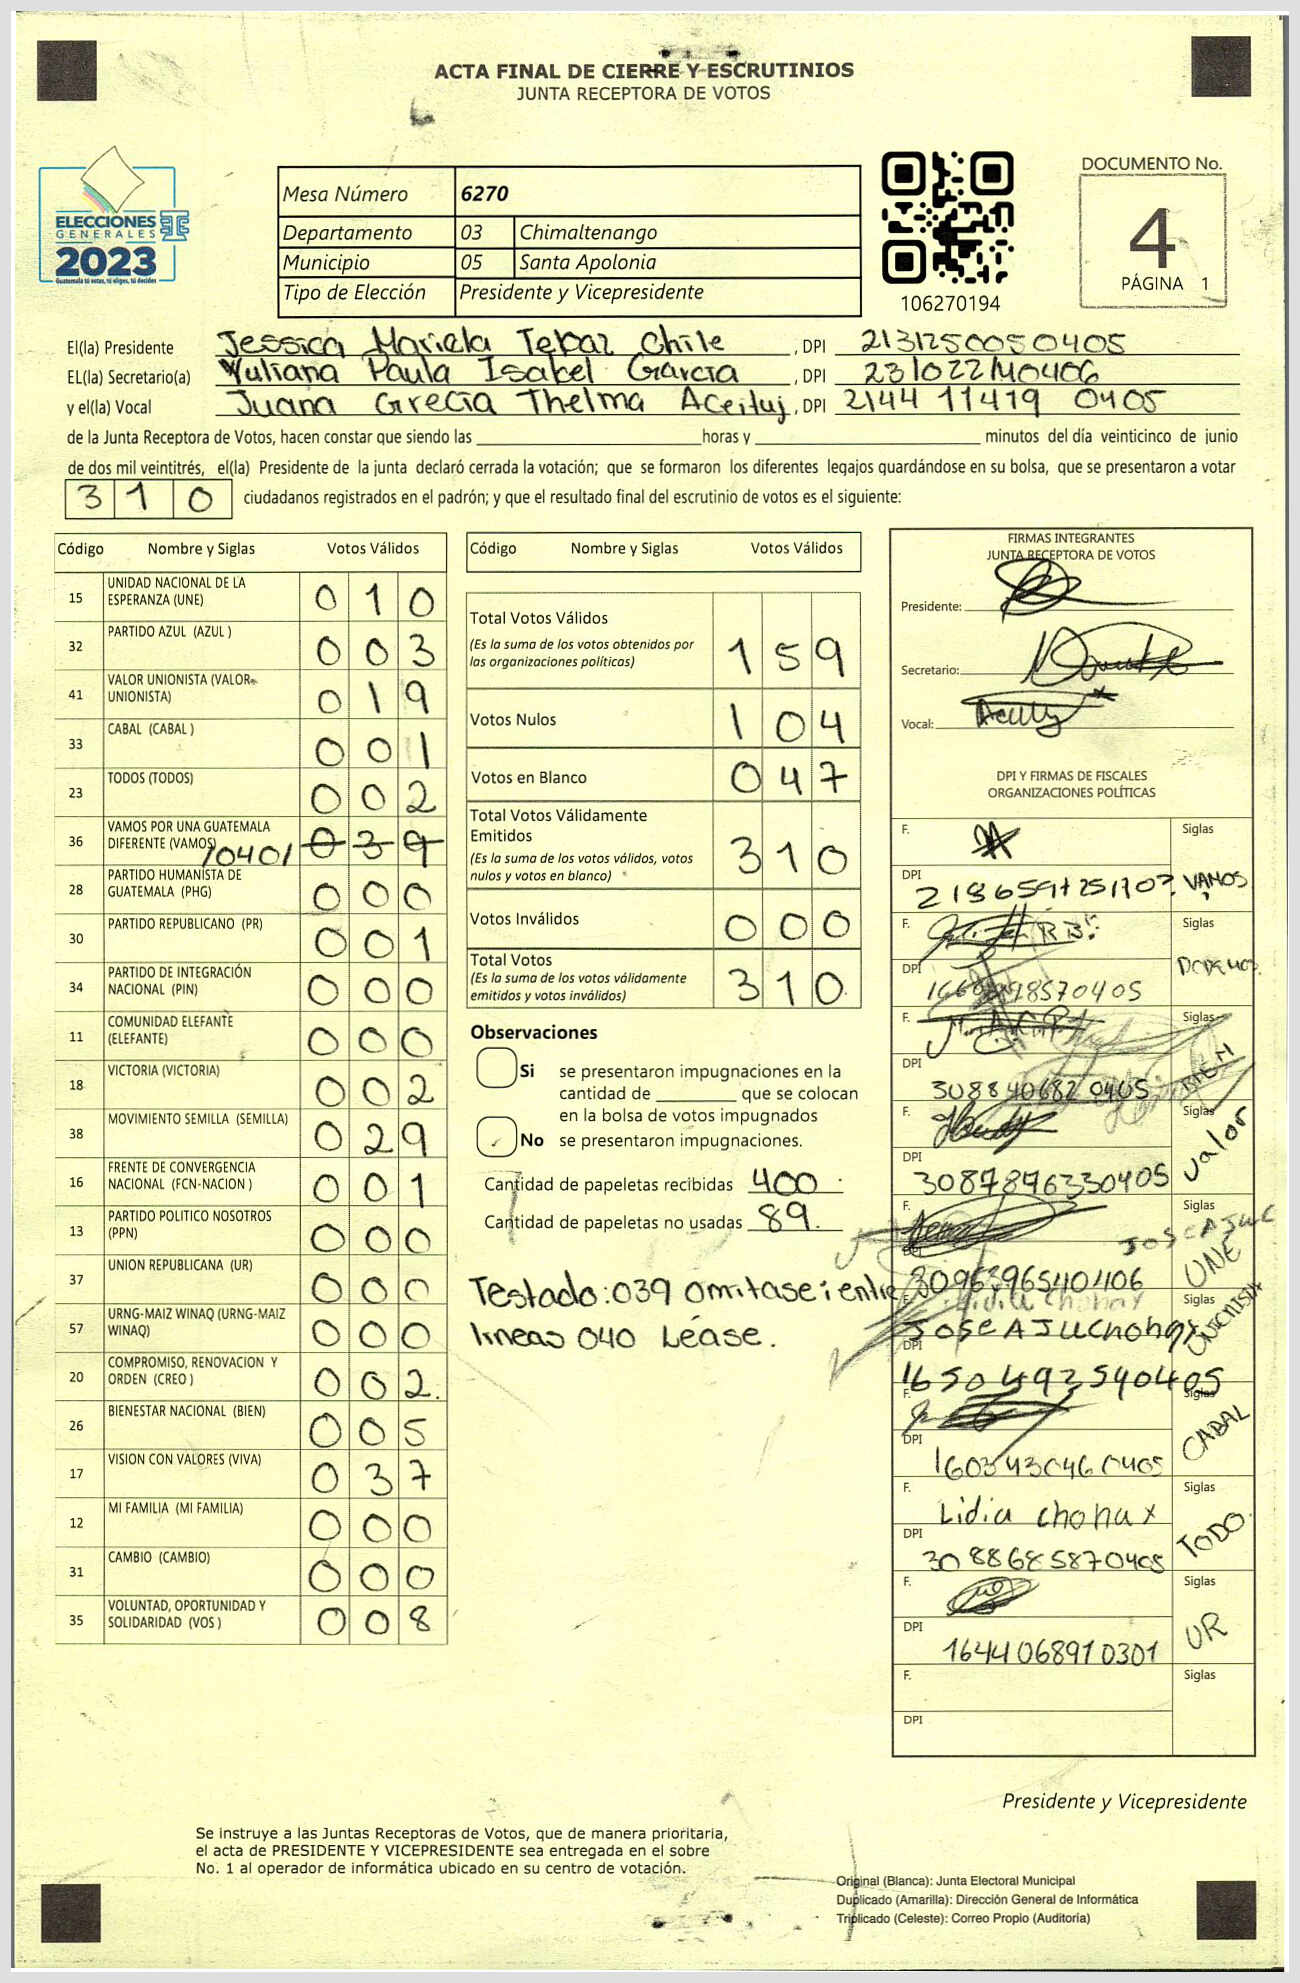 ACTA FINAL DE CIERRE Y ESCRUTINIOS
JUNTA RECEPTORA DE VOTOS
ELECCIONES
GENERALES
2023
Guatemala tú votas, tú eliges, tú decides
Mesa Número 6270
Departamento 03 Chimaltenango
Municipio 05 Santa Apolonia
Tipo de Elección Presidente y Vicepresidente
106270194
DOCUMENTO No.
4
PÁGINA 1
El(la) Presidente Jessica Mariela Tebaz Chile, DPI 2131250050405
EL(la) Secretario(a) Yuliana Paula Isabel Garcia, DPI
y el(la) Vocal Juana Grecia Thelma Aceituj, DPI 2144 11419 0405
de la Junta Receptora de Votos, hacen constar que siendo las ____ horas y ____ minutos del día veinticinco de junio
de dos mil veintitrés, el(la) Presidente de la junta declaró cerrada la votación; que se formaron los diferentes legajos guardándose en su bolsa, que se presentaron a votar
310 ciudadanos registrados en el padrón; y que el resultado final del escrutinio de votos es el siguiente:
Código Nombre y Siglas Votos Válidos
15 UNIDAD NACIONAL DE LA ESPERANZA (UNE) 010
32 PARTIDO AZUL (AZUL ) 003
41 VALOR UNIONISTA (VALOR-UNIONISTA) 019
33 CABAL (CABAL ) 001
23 TODOS (TODOS) 002
36 VAMOS POR UNA GUATEMALA DIFERENTE (VAMOS) /040/ 039
28 PARTIDO HUMANISTA DE GUATEMALA (PHG) 000
30 PARTIDO REPUBLICANO (PR) 001
34 PARTIDO DE INTEGRACIÓN NACIONAL (PIN) 000
11 COMUNIDAD ELEFANTE (ELEFANTE) 000
18 VICTORIA (VICTORIA) 002
38 MOVIMIENTO SEMILLA (SEMILLA) 029
16 FRENTE DE CONVERGENCIA NACIONAL (FCN-NACION ) 001
13 PARTIDO POLITICO NOSOTROS (PPN) 000
37 UNION REPUBLICANA (UR) 000
57 URNG-MAIZ WINAQ (URNG-MAIZ WINAQ) 000
20 COMPROMISO, RENOVACION Y ORDEN (CREO ) 002.
26 BIENESTAR NACIONAL (BIEN) 005
17 VISION CON VALORES (VIVA) 037
12 MI FAMILIA (MI FAMILIA) 000
31 CAMBIO (CAMBIO) 000
35 VOLUNTAD, OPORTUNIDAD Y SOLIDARIDAD (VOS ) 008
Código Nombre y Siglas Votos Válidos
Total Votos Válidos 159
(Es la suma de los votos obtenidos por
las organizaciones políticas)
Votos Nulos 104
Votos en Blanco 047
Total Votos Válidamente
Emitidos 310
(Es la suma de los votos válidos, votos
nulos y votos en blanco)
Votos Inválidos 000
Total Votos 310.
(Es la suma de los votos válidamente
emitidos y votos inválidos)
Observaciones
Si se presentaron impugnaciones en la
cantidad de ____ que se colocan
en la bolsa de votos impugnados
No se presentaron impugnaciones.
Cantidad de papeletas recibidas 400
Cantidad de papeletas no usadas 89.
Testado: 039 omitase i entre
lineas 040 Léase.
FIRMAS INTEGRANTES
JUNTA RECEPTORA DE VOTOS
Presidente:
Secretario:
Vocal:
DPI Y FIRMAS DE FISCALES
ORGANIZACIONES POLÍTICAS
F. Siglas
DPI VAMOS
F. Siglas
DPI PODEMOS
F. Siglas
DPI 3088406820405 BIEN
F. Siglas
DPI 3087876330405 Valor
F. Siglas
JOSE AJUC
DPI 3096396540406 UNE
F. Lidia Chonax Siglas
JOSE AJUChonay
DPI 1650492590405 UNIONISTA
F. Siglas
DPI 1603430460405 CABAL
F. Siglas
Lidia chonax
DPI 3088685870405 TODO
F. Siglas
DPI 1644068910301 UR
F. Siglas
DPI
Presidente y Vicepresidente
Se instruye a las Juntas Receptoras de Votos, que de manera prioritaria,
el acta de PRESIDENTE Y VICEPRESIDENTE sea entregada en el sobre
No. 1 al operador de informática ubicado en su centro de votación.
Original (Blanca): Junta Electoral Municipal
Duplicado (Amarilla): Dirección General de Informática
Triplicado (Celeste): Correo Propio (Auditoría)